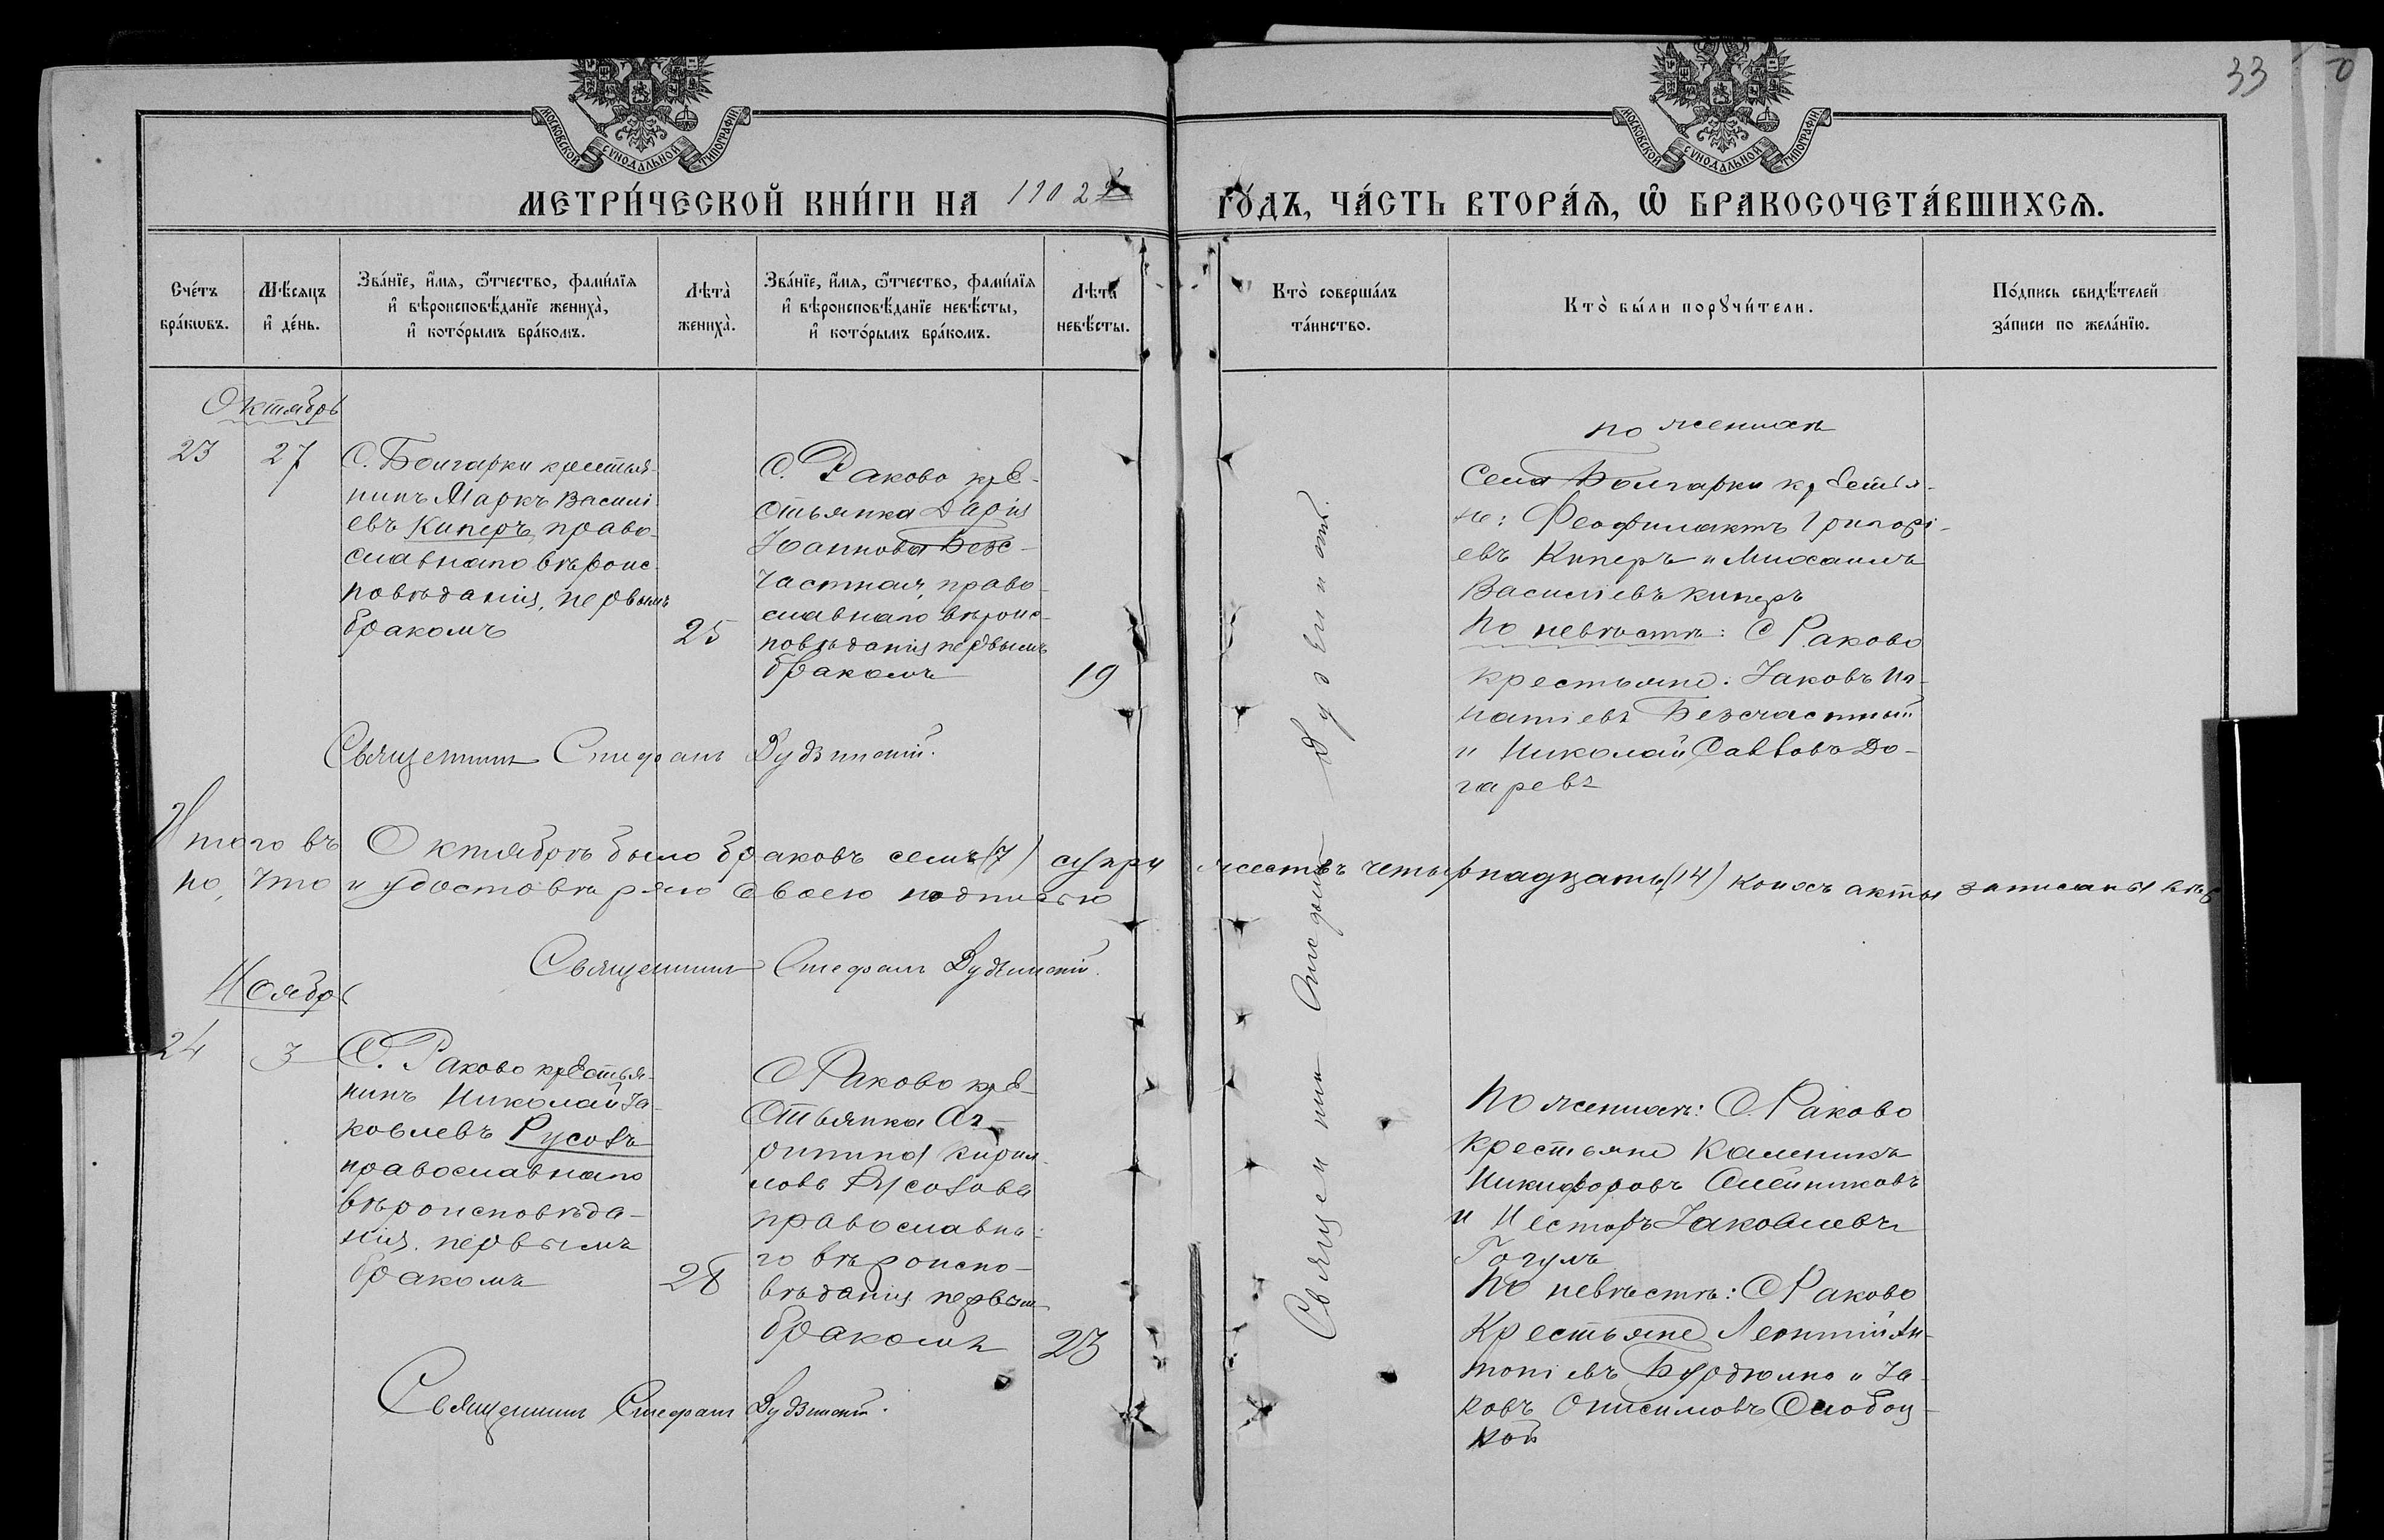 33
МОСКОВСКОЙ СУНОДАЛЬНОЙ ТИПОГРАФІИ
МОСКОВСКОЙ СУНОДАЛЬНОЙ ТИПОГРАФІИ
МЕТРИ́ЧЕСКОЙ КНИ́ГИ НА 1902
ГО́ДЪ, ЧА́СТЬ ВТОРА́Я, Ѡ҆ БРАКОСОЧЕТА́ВШИХСЯ.
Сче́тъ
бра́кωвъ.
Мѣ́сяцъ
и҆ де́нь.
Зва́нїе, и҆́мя, ѻ҆́тчество, фами́лїя
и҆ вѣроисповѣ́данїе жениха̀,
и҆ кото́рымъ бра́комъ.
Лѣта̀
жениха̀.
Зва́нїе, и҆́мя, ѻ҆́тчество, фами́лїя
и҆ вѣроисповѣ́данїе невѣ́сты,
и҆ кото́рымъ бра́комъ.
Лѣта̀
невѣ́сты.
Кто̀ соверша́лъ
та́инство.
Кто̀ бы́ли порꙋчи́тели.
По́дпись свидѣ́телей
за́писи по жела́нїю.
Октябрь
23
27
С. Болгарки крестья-
нинъ Маркъ Василі-
евъ Киперъ, право-
славнаго вѣроис-
повѣданія, первымъ
бракомъ
25
С. Раково кре-
стьянка Дарія
Іоаннова Безс-
частная, право-
славнаго вѣроис-
повѣданія первымъ
бракомъ
19
Священникъ Стефанъ Дудзинскій.
по женихѣ
Села Болгарки крестья-
не: Феофилактъ Григорі-
евъ Киперъ и Михаилъ
Василіевъ Киперъ
По невѣстѣ: С Раково
крестьяне: Іаковъ Иг-
натіевъ Безсчастный
и Николай Савовъ До-
гаревъ
Итого въ Октябрѣ было браковъ семь (7) супружествъ четырнадцать (14) коихъ акты записаны вѣр
но, что и удостовѣряю своею подписью
Священникъ Стефанъ Дудзинскій.
Ноябрь
24
3
С. Раково крестья-
нинъ Николай Іа-
ковлевъ Русовъ
православнаго
вѣроисповѣда-
нія, первымъ
бракомъ
28
С Раково кре-
стьянка Аг-
рипина Кирил-
лова Русова
православна-
го вѣроиспо-
вѣданія первым
бракомъ
23
Священникъ Стефанъ Дудзинскій.
Священникъ Стефанъ Дудзинскій.
По женихѣ: С. Раково
крестьяне Калиникъ
Никифоровъ Олейниковъ
и Несторъ Іаковлевъ
Гогулъ
По невѣстѣ: С Раково
Крестьяне Леонтій Ан-
тоніевъ Бурдюжа и Іа-
ковъ Онисимовъ Слобоц-
кой